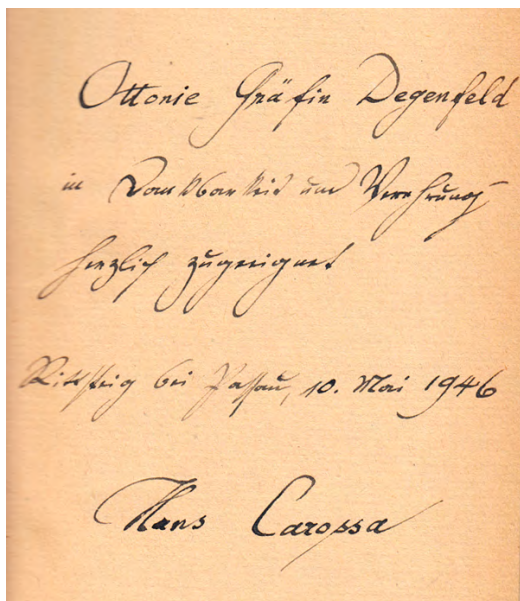 Ottonie Gräfin Degenfeld
in Dankbarkeit und Verehrung
herzlich zugeeignet
Rittsteig bei Passau, 10. Mai 1946
Hans Carossa